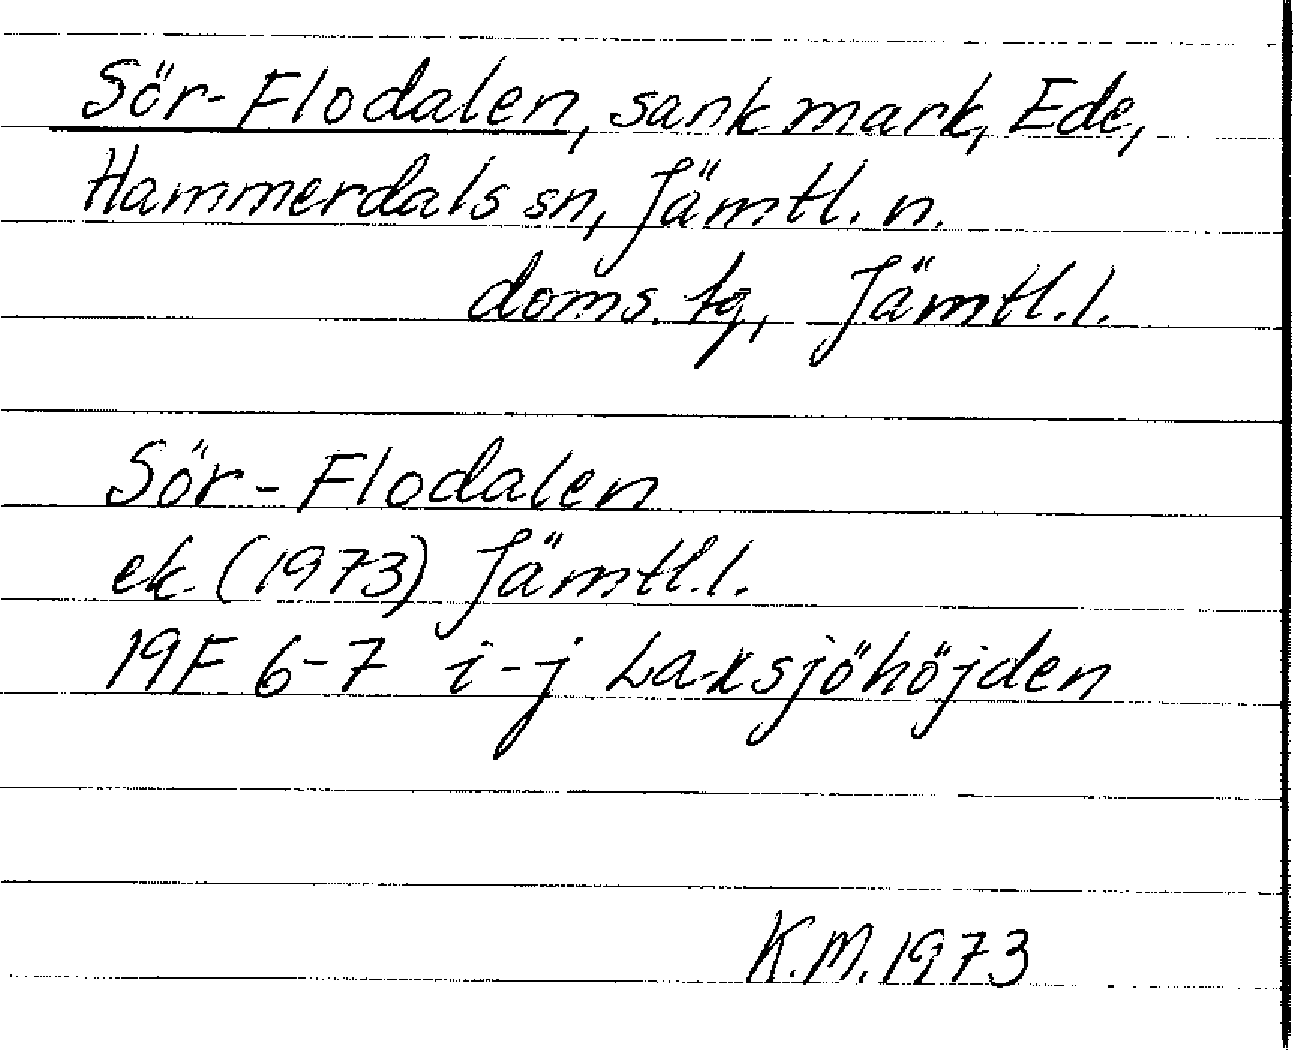 Sör-Flodalen, sank mark, Ede,
Hammerdals sn, Jämtl. n.
doms. tg, Jämtl. l.
Sör-Flodalen
ek. (1973) Jämtl. l.
19F 6-7 i-j Laxsjöhöjden
K.M. 1973